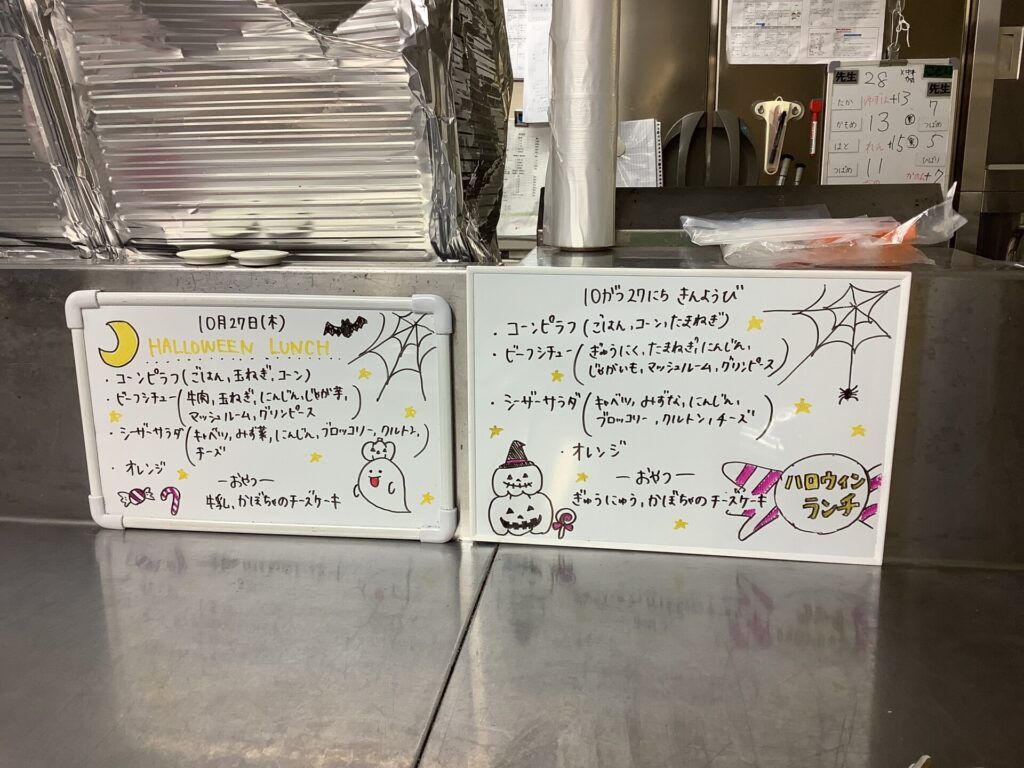 10月27日(木)
HALLOWEEN LUNCH
・コーンピラフ(ごはん,玉ねぎ,コーン)
・ビーフシチュー(牛肉,玉ねぎ,にんじん,じゃが芋,
マッシュルーム,グリンピース)
・シーザーサラダ(キャベツ,みず菜,にんじん,ブロッコリー,クルトン,
チーズ)
・オレンジ
―おやつ―
牛乳,かぼちゃのチーズケーキ
10がつ27にち きんようび
・コーンピラフ(ごはん,コーン,たまねぎ)
・ビーフシチュー(ぎゅうにく,たまねぎ,にんじん,
じゃがいも,マッシュルーム,グリンピース)
・シーザーサラダ(キャベツ,みずな,にんじん,
ブロッコリー,クルトン,チーズ)
・オレンジ
―おやつ―
ぎゅうにゅう,かぼちゃのチーズケーキ
ハロウィン
ランチ
先生 28
先生
たか +13 7
かもめ 13 つばめ
はと +15 5
つばめ 11 ひばり
+7